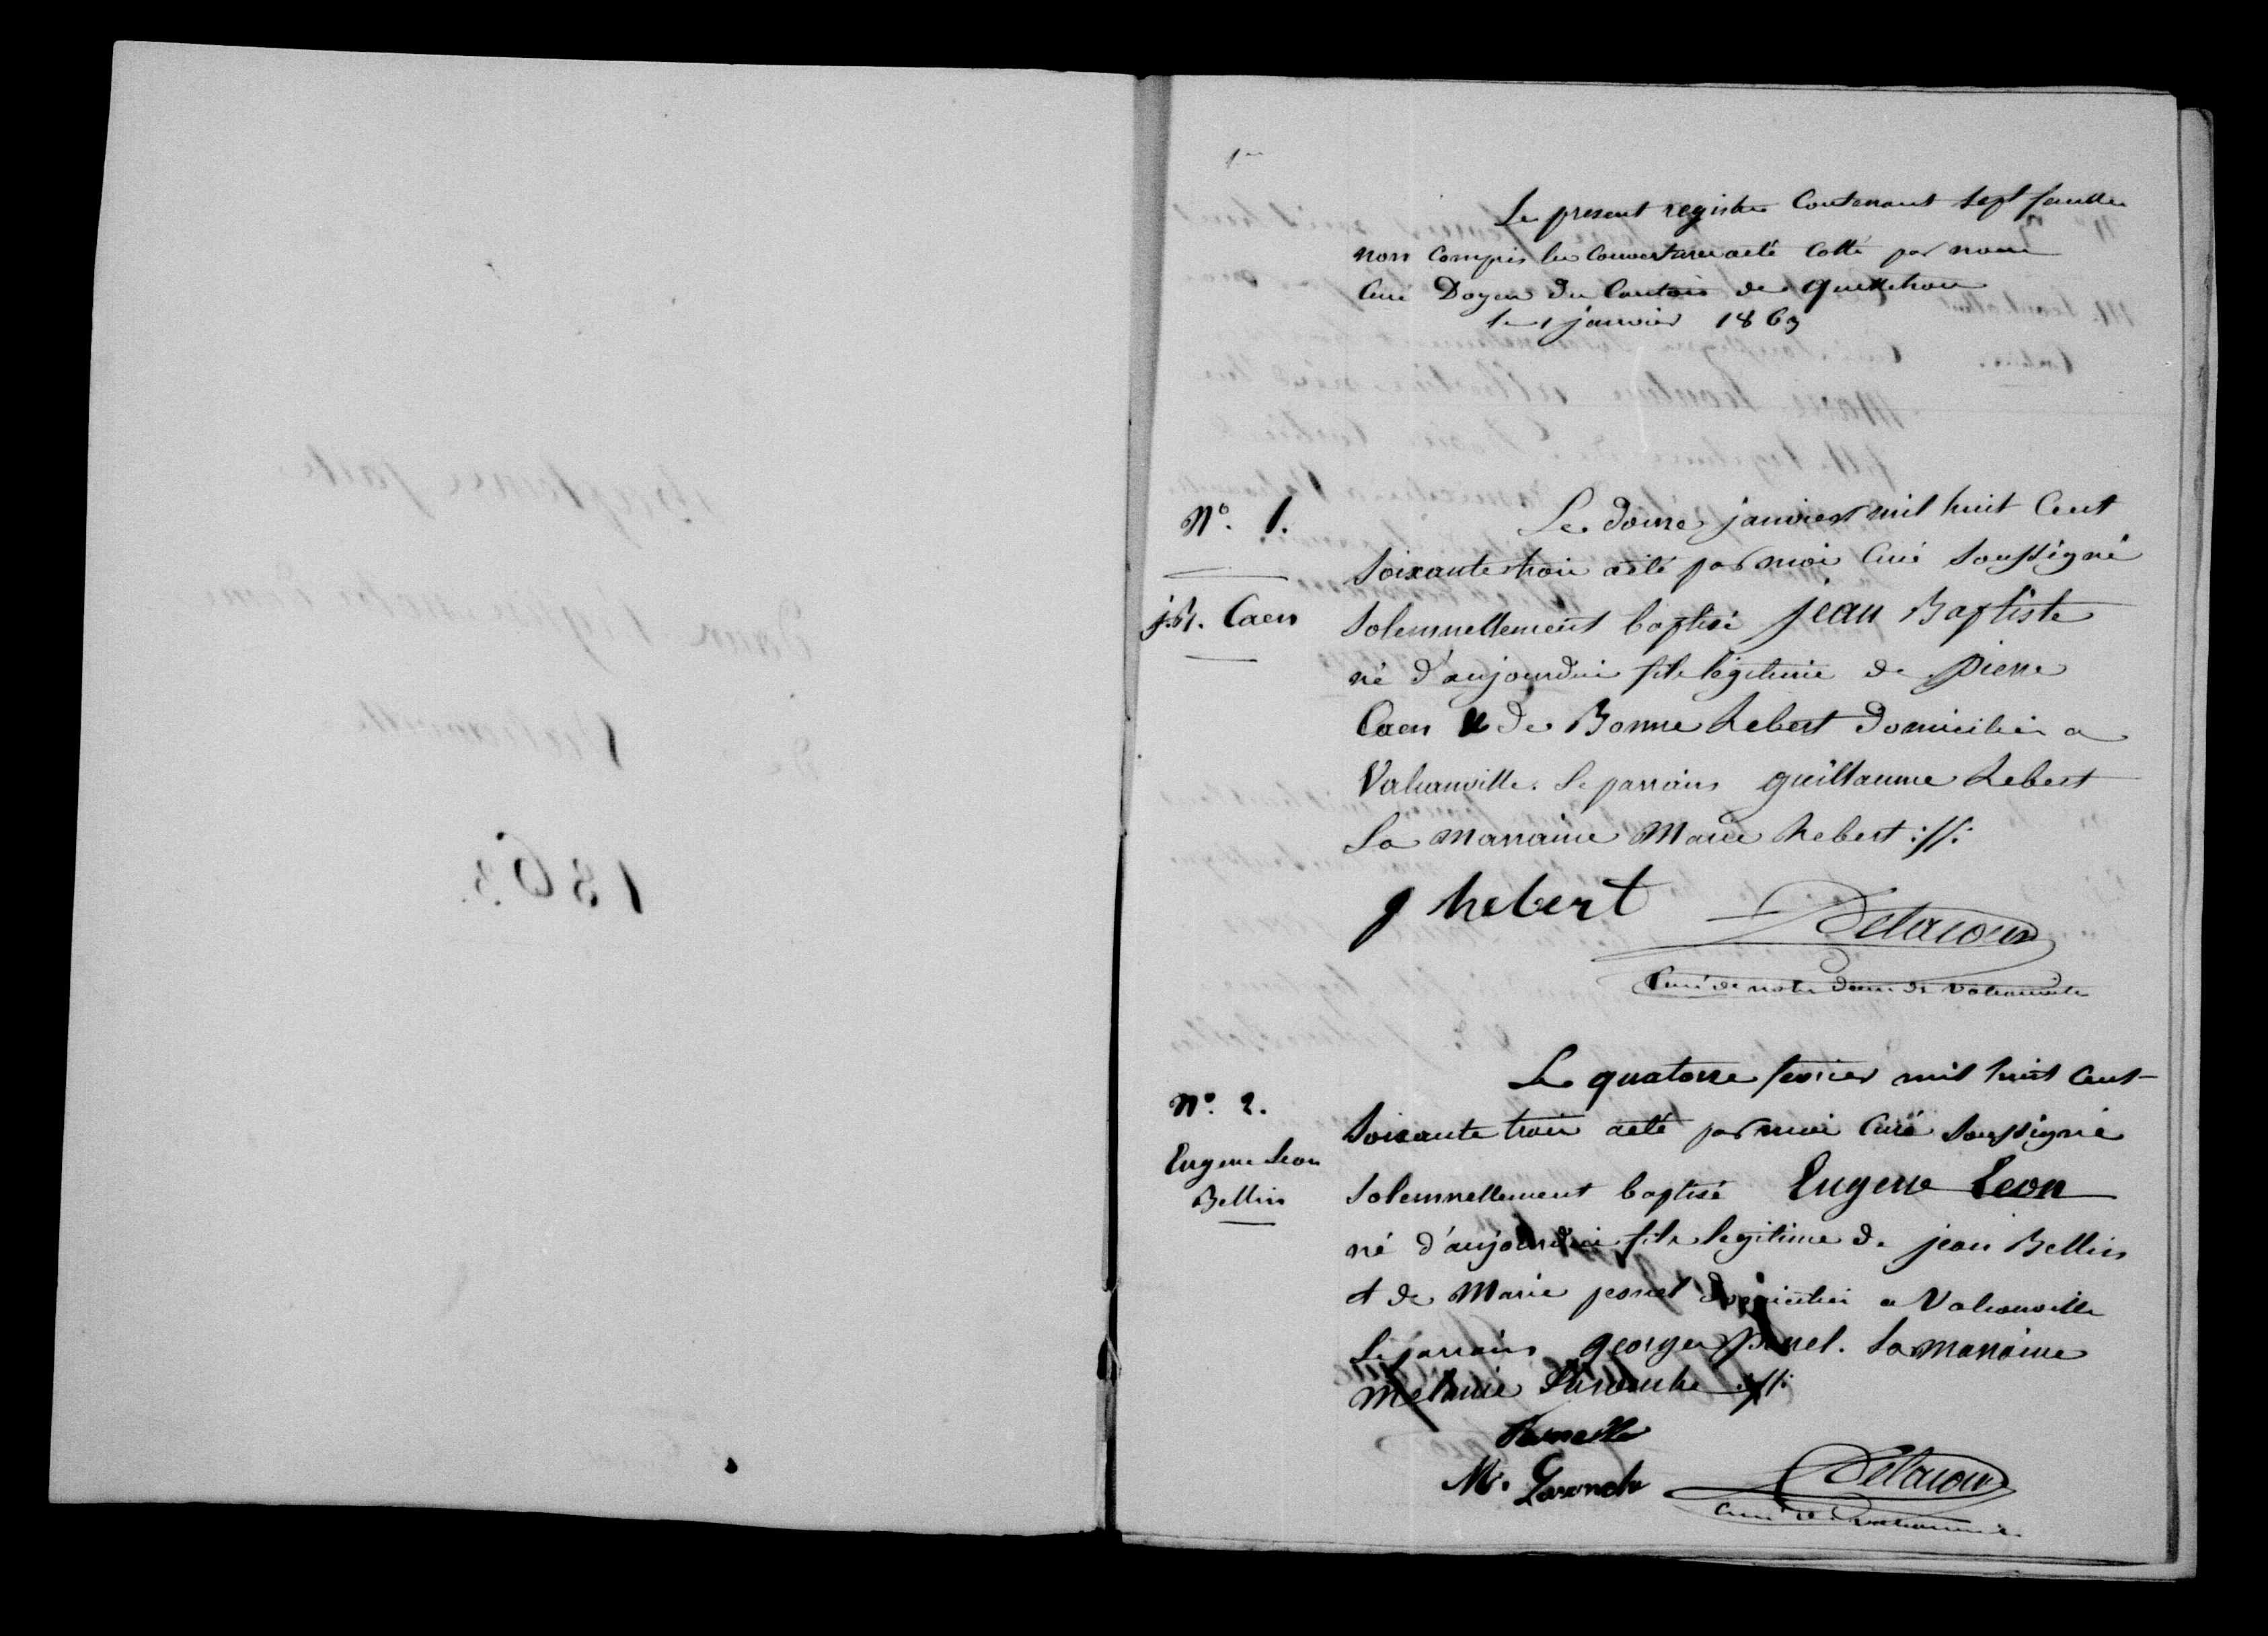 1er
Le present registre Contenant sept feuilles
non Compris les Couvertures a été Cotté par nous
Curé Doyen du Canton de quettehou
le 1 janvier 1863
N°. 1.
j.B. Caen
Le douze janvier mil huit Cent
Soixante trois a été par moi Curé Soussigné
Solemnellement baptisé jean Baptiste
né d'aujourdui fils légitime de pierre
Caen & de Bonne hebert domiciliés a
Valcanville. Le parrain guillaume hebert
La marraine Marie hebert ://:
g hebert
Delacour
Curé de notre dame de Valcanville
N°. 2.
Eugene Leon
Bellin
Le quatorze fevrier mil huit Cent
Soixante trois a été par moi Curé Soussigné
Solemnellement baptisé Eugene Leon
né d'aujourdui fils legitime de jean Bellin
et de Marie domiciliés a Valcanville
Le parrain george La marraine
Melanie
M.
Delacour
Curé de Valcanville
Baptemes faits
dans l'église notre dame
de Valcanville
1863.